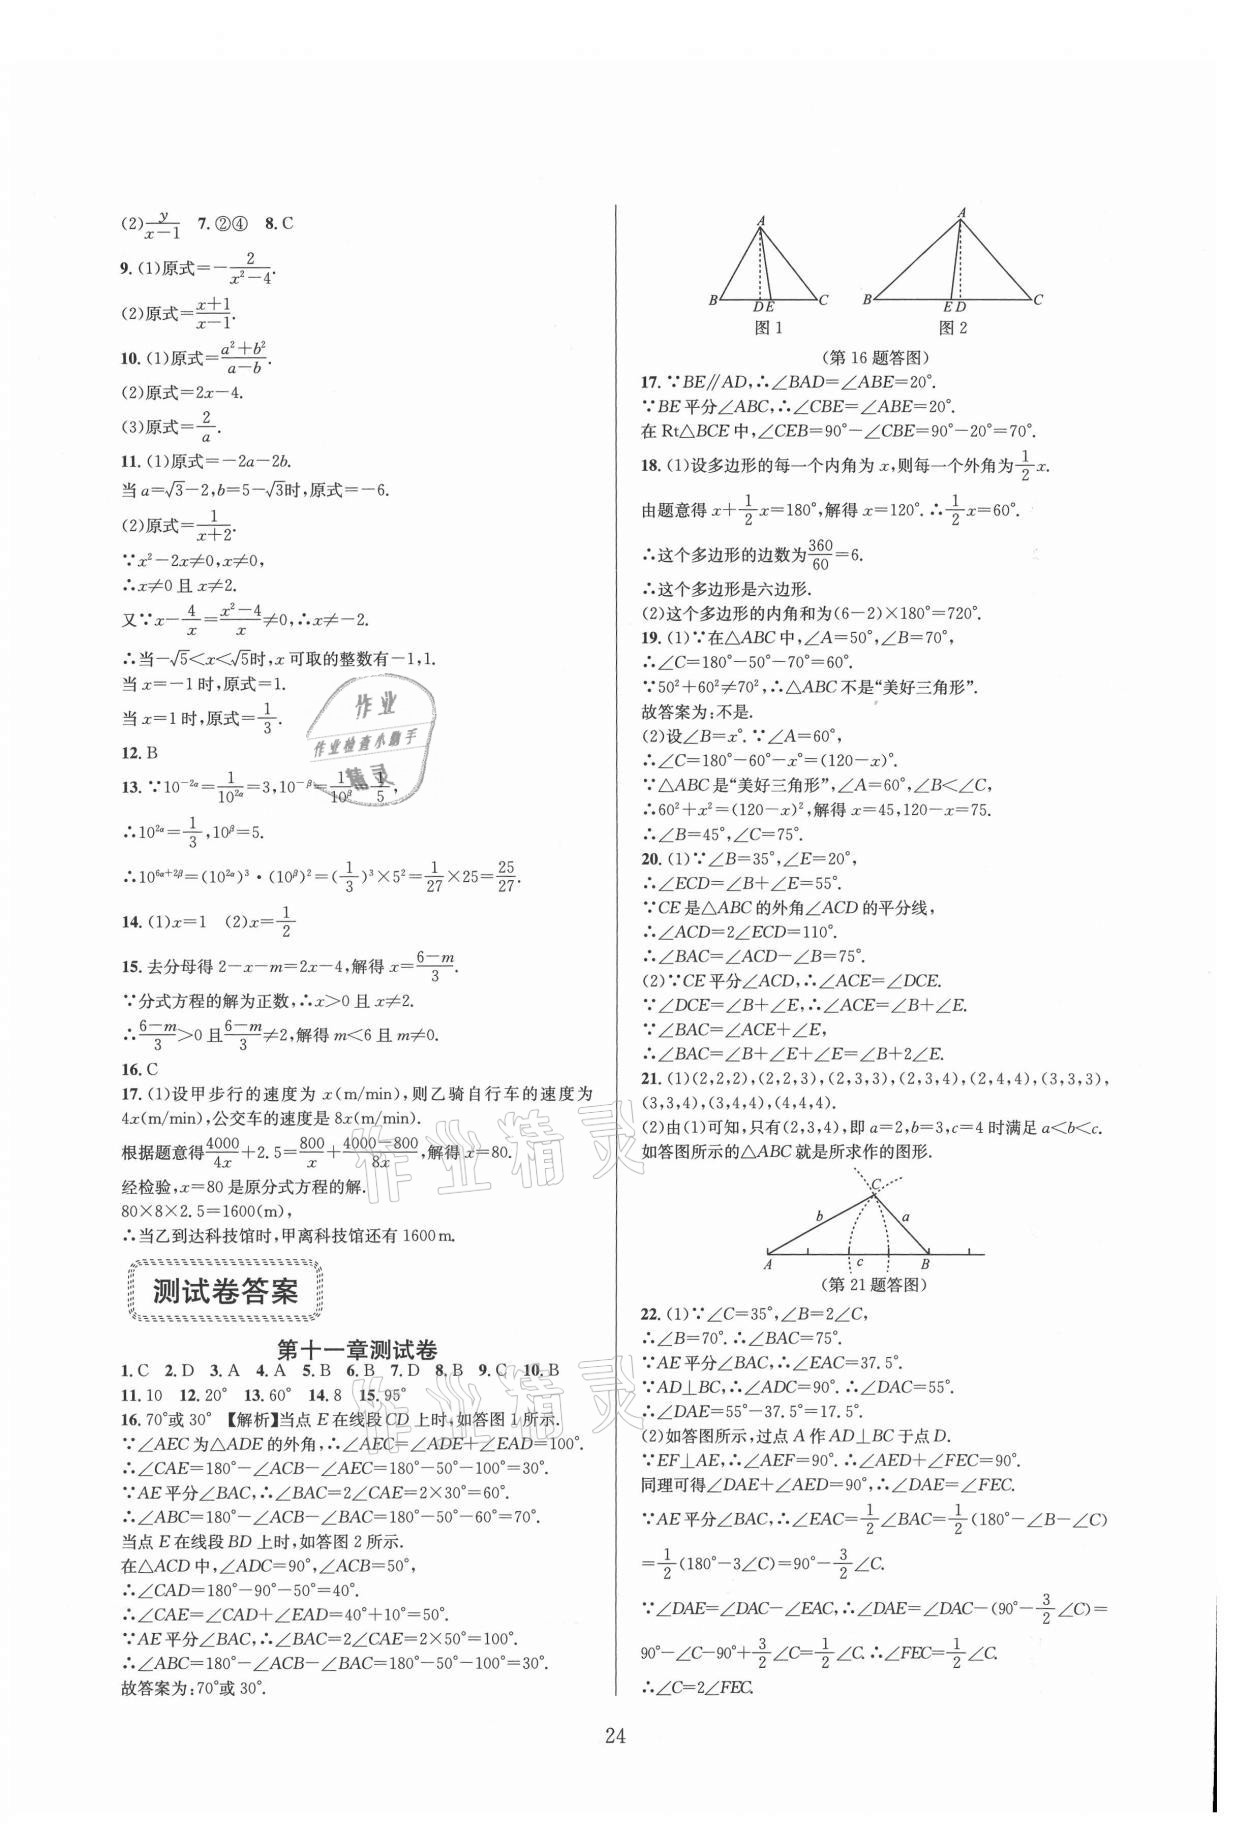 (2)y/(x-1)　7. ②④　8. C
9. (1)原式=-2/(x²-4).
(2)原式=(x+1)/(x-1).
10. (1)原式=(a²+b²)/(a-b).
(2)原式=2x-4.
(3)原式=2/a.
11. (1)原式=-2a-2b.
当a=√3-2,b=5-√3时,原式=-6.
(2)原式=1/(x+2).
∵x²-2x≠0,x≠0,
∴x≠0且x≠2.
又∵x-4/x=(x²-4)/x≠0,∴x≠-2.
∴当-√5<x<√5时,x可取的整数有-1,1.
当x=-1时,原式=1.
当x=1时,原式=1/3.
12. B
13. ∵10^(-2α)=1/10^(2α)=3,10^(-β)=1/10^β=1/5,
∴10^(2α)=1/3,10^β=5.
∴10^(6α+2β)=(10^(2α))³·(10^β)²=(1/3)³×5²=1/27×25=25/27.
14. (1)x=1　(2)x=1/2
15. 去分母得2-x-m=2x-4,解得x=(6-m)/3.
∵分式方程的解为正数,∴x>0且x≠2.
∴(6-m)/3>0且(6-m)/3≠2,解得m<6且m≠0.
16. C
17. (1)设甲步行的速度为x(m/min),则乙骑自行车的速度为
4x(m/min),公交车的速度是8x(m/min).
根据题意得4000/4x+2.5=800/x+(4000-800)/8x,解得x=80.
经检验,x=80是原分式方程的解.
80×8×2.5=1600(m),
∴当乙到达科技馆时,甲离科技馆还有1600m.
测试卷答案
第十一章测试卷
1. C　2. D　3. A　4. A　5. B　6. B　7. D　8. B　9. C　10. B
11. 10　12. 20°　13. 60°　14. 8　15. 95°
16. 70°或30°　【解析】当点E在线段CD上时,如答图1所示.
∵∠AEC为△ADE的外角,∴∠AEC=∠ADE+∠EAD=100°.
∴∠CAE=180°-∠ACB-∠AEC=180°-50°-100°=30°.
∵AE平分∠BAC,∴∠BAC=2∠CAE=2×30°=60°.
∴∠ABC=180°-∠ACB-∠BAC=180°-50°-60°=70°.
当点E在线段BD上时,如答图2所示.
在△ACD中,∠ADC=90°,∠ACB=50°,
∴∠CAD=180°-90°-50°=40°.
∴∠CAE=∠CAD+∠EAD=40°+10°=50°.
∵AE平分∠BAC,∴∠BAC=2∠CAE=2×50°=100°.
∴∠ABC=180°-∠ACB-∠BAC=180°-50°-100°=30°.
故答案为:70°或30°.
作业
作业检查小助手
精灵
作业精灵
作业精灵
A
B D E C
图1
A
B E D C
图2
(第16题答图)
17. ∵BE∥AD,∴∠BAD=∠ABE=20°.
∵BE平分∠ABC,∴∠CBE=∠ABE=20°.
在Rt△BCE中,∠CEB=90°-∠CBE=90°-20°=70°.
18. (1)设多边形的每一个内角为x,则每一个外角为1/2x.
由题意得x+1/2x=180°,解得x=120°.∴1/2x=60°.
∴这个多边形的边数为360/60=6.
∴这个多边形是六边形.
(2)这个多边形的内角和为(6-2)×180°=720°.
19. (1)∵在△ABC中,∠A=50°,∠B=70°,
∴∠C=180°-50°-70°=60°.
∵50²+60²≠70²,∴△ABC不是“美好三角形”.
故答案为:不是.
(2)设∠B=x°.∵∠A=60°,
∴∠C=180°-60°-x°=(120-x)°.
∵△ABC是“美好三角形”,∠A=60°,∠B<∠C,
∴60²+x²=(120-x)²,解得x=45,120-x=75.
∴∠B=45°,∠C=75°.
20. (1)∵∠B=35°,∠E=20°,
∴∠ECD=∠B+∠E=55°.
∵CE是△ABC的外角∠ACD的平分线,
∴∠ACD=2∠ECD=110°.
∴∠BAC=∠ACD-∠B=75°.
(2)∵CE平分∠ACD,∴∠ACE=∠DCE.
∵∠DCE=∠B+∠E,∴∠ACE=∠B+∠E.
∵∠BAC=∠ACE+∠E,
∴∠BAC=∠B+∠E+∠E=∠B+2∠E.
21. (1)(2,2,2),(2,2,3),(2,3,3),(2,3,4),(2,4,4),(3,3,3),
(3,3,4),(3,4,4),(4,4,4).
(2)由(1)可知,只有(2,3,4),即a=2,b=3,c=4时满足a<b<c.
如答图所示的△ABC就是所求作的图形.
C
b a
A c B
(第21题答图)
22. (1)∵∠C=35°,∠B=2∠C,
∴∠B=70°.∴∠BAC=75°.
∵AE平分∠BAC,∴∠EAC=37.5°.
∵AD⊥BC,∴∠ADC=90°.∴∠DAC=55°.
∴∠DAE=55°-37.5°=17.5°.
(2)如答图所示,过点A作AD⊥BC于点D.
∵EF⊥AE,∴∠AEF=90°.∴∠AED+∠FEC=90°.
同理可得∠DAE+∠AED=90°,∴∠DAE=∠FEC.
∵AE平分∠BAC,∴∠EAC=1/2∠BAC=1/2(180°-∠B-∠C)
=1/2(180°-3∠C)=90°-3/2∠C.
∵∠DAE=∠DAC-∠EAC,∴∠DAE=∠DAC-(90°-3/2∠C)=
90°-∠C-90°+3/2∠C=1/2∠C.∴∠FEC=1/2∠C.
∴∠C=2∠FEC.
24